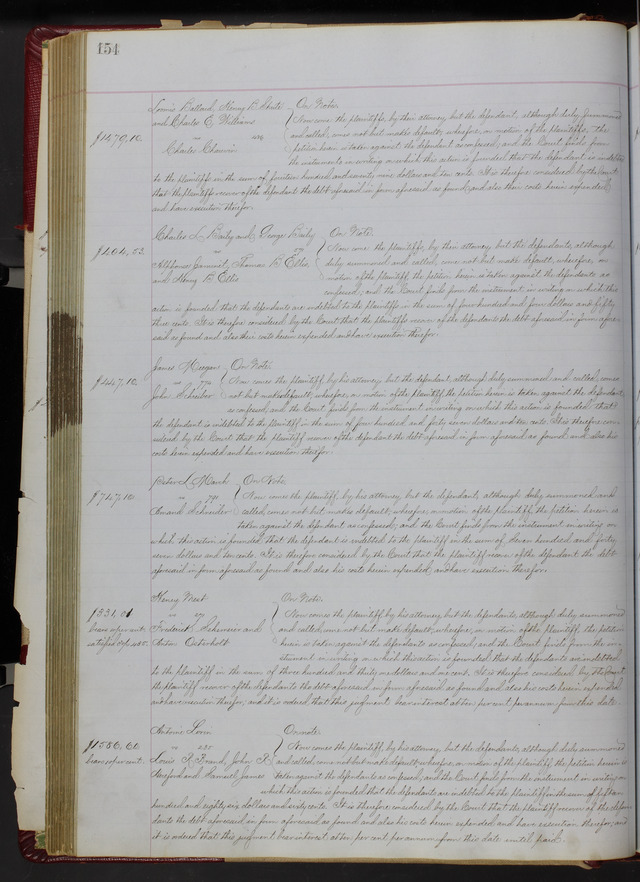 154
Louis Ballard, Henry B. and Charles E. Williams On Note.
Now come the plaintiffs, by their attorney but the defendant, although duly summoned
$1479.10 vs and called, comes not but makes default; wherefore, on motion of the plaintiffs, the
Charles petition herein is taken against the defendant as confessed, and the Court finds from
the instruments in writing on which this action is founded that the defendant is indebted
to the plaintiffs in the sum of fourteen hundred and seventy nine dollars and ten cents. It is therefore considered by the Court
that the plaintiffs recover of the defendant the debt aforesaid in form aforesaid as found, and also their costs herein expended
and have execution therefor.
Charles L. Baily and George Baily On Note.
$404.53 vs Now come the plaintiffs, by their attorney but the defendants, although
Alphonse Thomas B. Ellis, duly summoned and called, come not but make default; wherefore, on
and Henry B. Ellis motion of the plaintiffs, the petition herein is taken against the defendants as
confessed, and the Court finds from the instrument in writing on which this
action is founded that the defendants are indebted to the plaintiffs in the sum of four hundred and four dollars and fifty
three cents. It is therefore considered by the Court that the plaintiffs recover of the defendants the debt aforesaid in form afore-
said as found and also their costs herein expended and have execution therefor.
James Meegan On Note.
$447.10 vs Now comes the plaintiff, by his attorney but the defendant, although duly summoned and called, comes
John not but makes default; wherefore, on motion of the plaintiff, the petition herein is taken against the defendant
as confessed, and the Court finds from the instrument in writing on which this action is founded that
the defendant is indebted to the plaintiff in the sum of four hundred and forty seven dollars and ten cents. It is therefore con-
sidered by the Court that the plaintiff recover of the defendant the debt aforesaid in form aforesaid as found and also his
costs herein expended and have execution therefor.
Peter L. On Note.
$747.10 vs Now comes the plaintiff, by his attorney, but the defendant, although duly summoned and
Amand Schneider called, comes not but makes default; wherefore, on motion of the plaintiff, the petition herein is
taken against the defendant as confessed, and the Court finds from the instrument in writing on
which this action is founded that the defendant is indebted to the plaintiff in the sum of seven hundred and forty
seven dollars and ten cents. It is therefore considered by the Court that the plaintiff recover of the defendant the debt
aforesaid in form aforesaid as found and also his costs herein expended, and have execution therefor.
Henry West On Note.
$331.01 vs Now comes the plaintiff by his attorney but the defendants, although duly summoned
Frederick and and called, come not but make default; wherefore, on motion of the plaintiff, the petition
Anton herein is taken against the defendants as confessed, and the Court finds from the in-
strument in writing on which this action is founded that the defendants are indebted
to the plaintiff in the sum of three hundred and thirty one dollars and one cent. It is therefore considered by the Court
the plaintiff recover of the defendants the debt aforesaid in form aforesaid as found and also his costs herein expended
and have execution therefor, and it is ordered that this judgment bear interest at ten per cent per annum from this date.
Antonio On note
$1586.60 vs Now comes the plaintiff, by his attorney, but the defendants, although duly summoned
Louis R. John R. and called, come not but make default; wherefore, on motion of the plaintiff, the petition herein is
and Samuel James taken against the defendants as confessed, and the Court finds from the instrument in writing on
which this action is founded that the defendants are indebted to the plaintiff in the sum of fifteen
hundred and eighty six dollars and sixty cents. It is therefore considered by the Court that the plaintiff recover of the defen-
dants the debt aforesaid in form aforesaid as found and also his costs herein expended and have execution therefor, and
it is ordered that this judgment bear interest at ten per cent per annum from this date until paid.